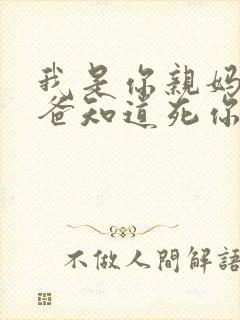 我是你親媽
爸知道死你
不做人間解語